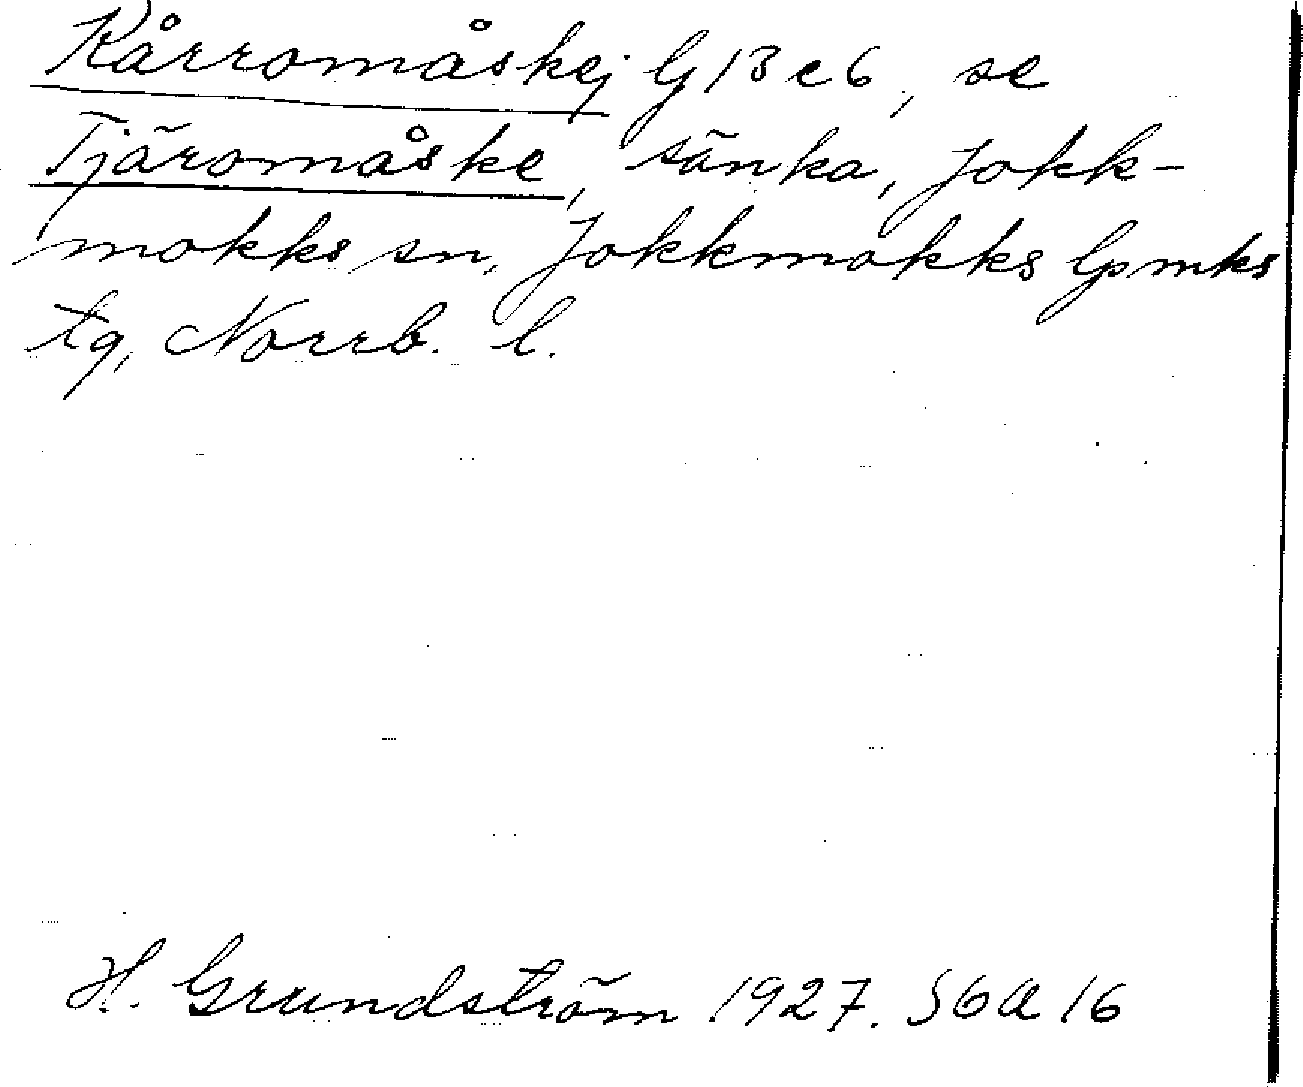 Kårromåskej G13e6, se
Tjäromåske, sänka, Jokk-
mokks sn, Jokkmokks lpmks
tg, Norrb. l.
H. Grundström 1927. S6a16